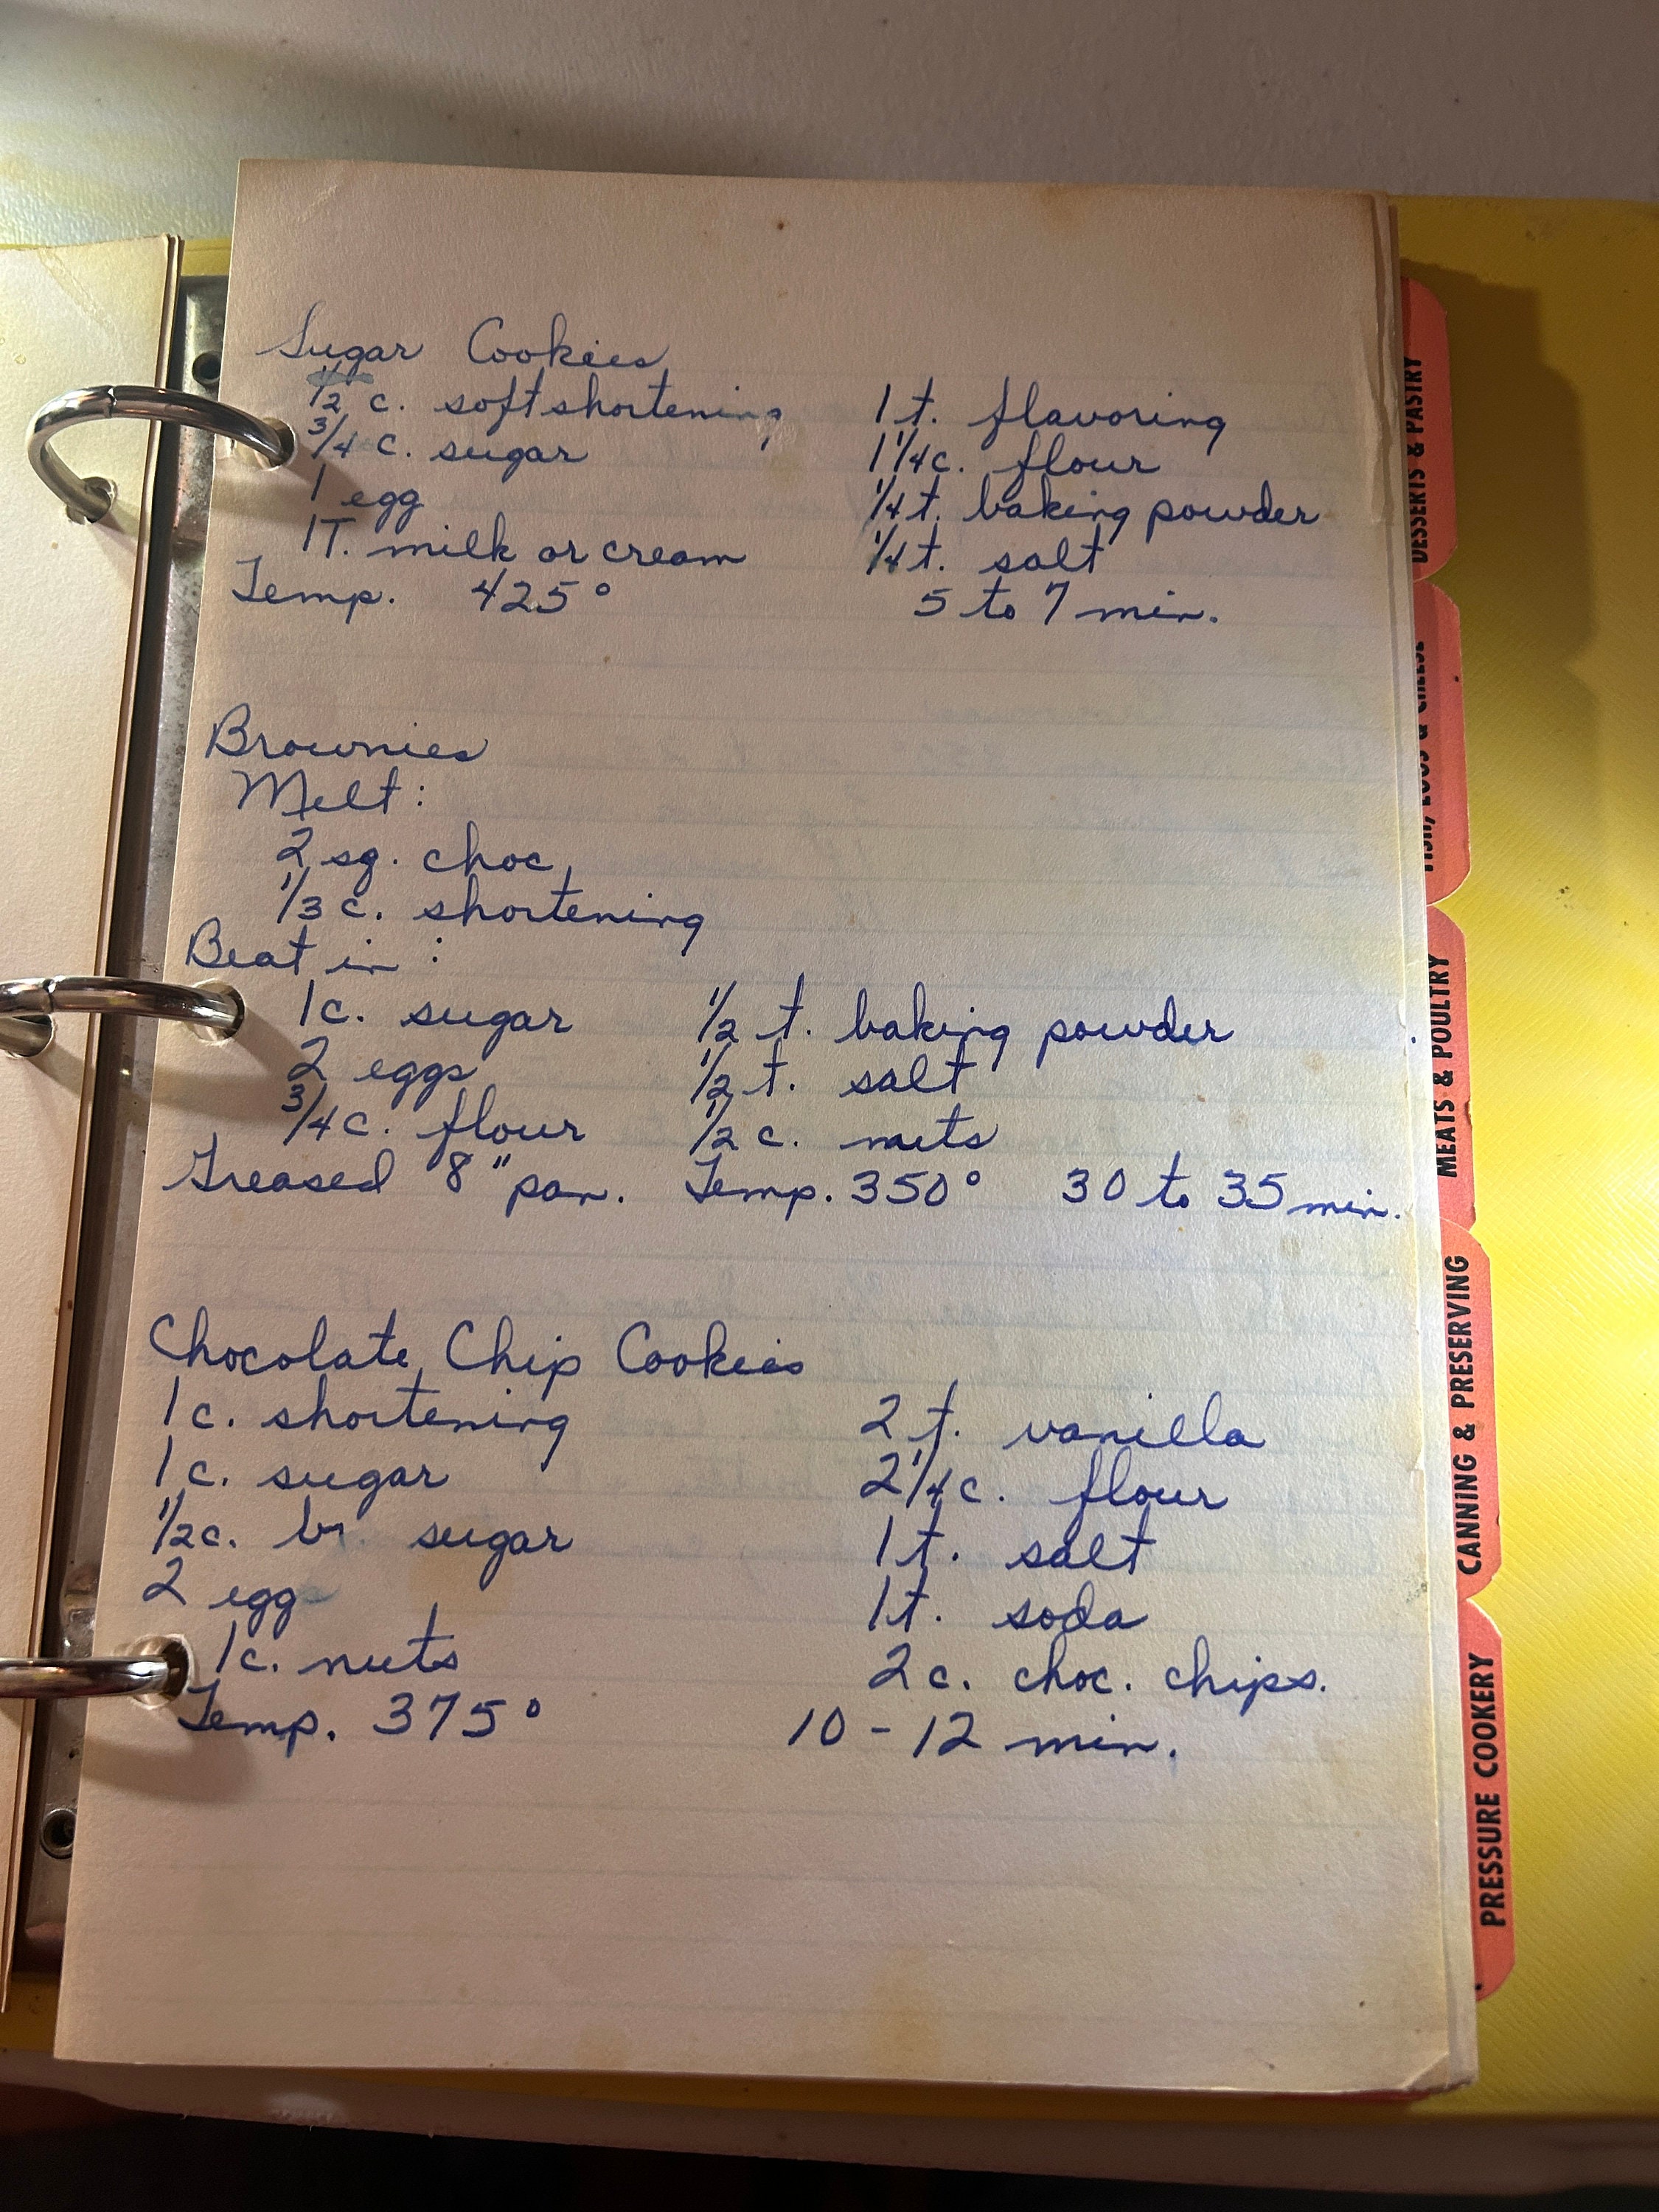 Sugar Cookies
1/2 c. soft shortening 1 t. flavoring
3/4 c. sugar 1 1/4 c. flour
1 egg 1/4 t. baking powder
1 T. milk or cream 1/4 t. salt
Temp. 425° 5 to 7 min.
Brownies
Melt:
2 sq. choc.
1/3 c. shortening
Beat in:
1 c. sugar 1/2 t. baking powder
2 eggs 1/2 t. salt
3/4 c. flour 1/2 c. nuts
Greased 8" pan. Temp. 350° 30 to 35 min.
Chocolate Chip Cookies
1 c. shortening 2 t. vanilla
1 c. sugar 2 1/4 c. flour
1/2 c. br. sugar 1 t. salt
2 egg 1 t. soda
1 c. nuts 2 c. choc. chips.
Temp. 375° 10 - 12 min.
DESSERTS & PASTRY
FISH, EGGS & CHEESE
MEATS & POULTRY
CANNING & PRESERVING
PRESSURE COOKERY